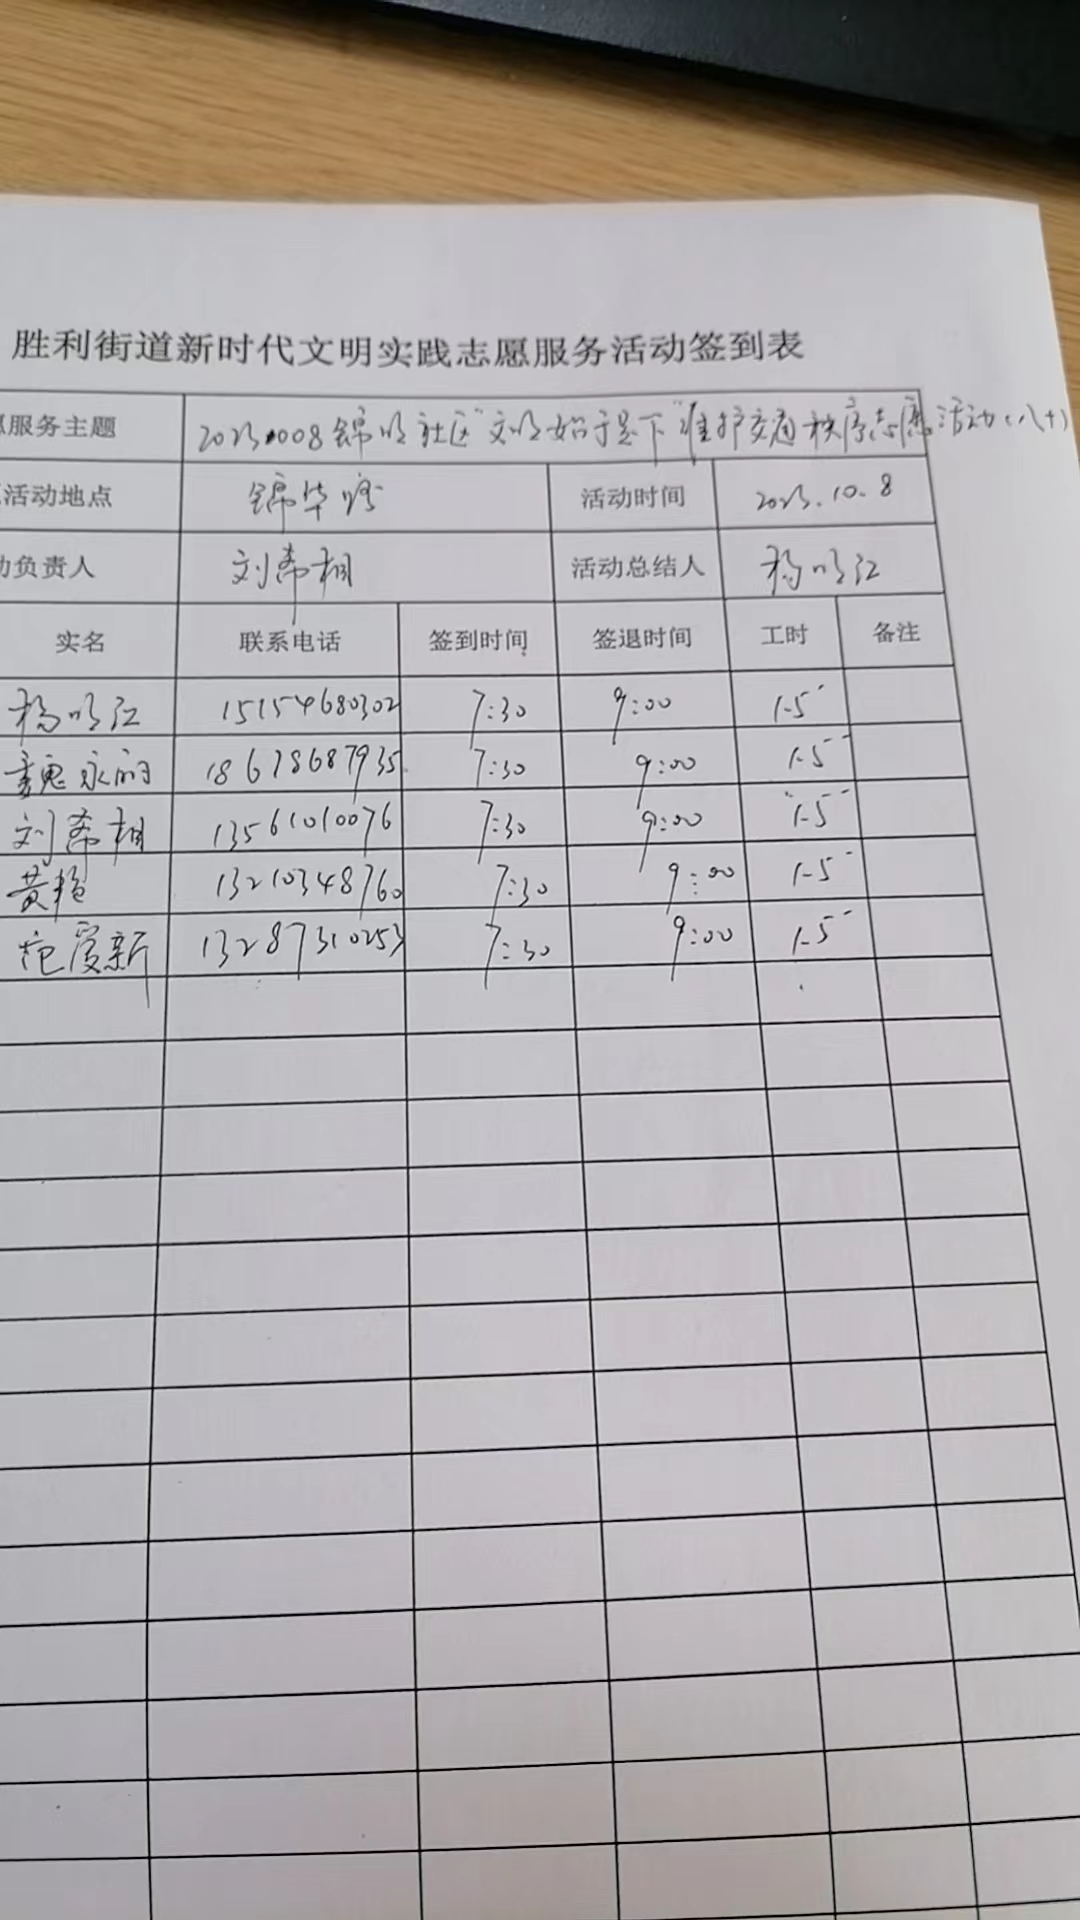 胜利街道新时代文明实践志愿服务活动签到表
愿服务主题 20231008锦明社区"文明始于足下"维护交通秩序志愿活动(八十)
活动地点 锦华路 活动时间 2023.10.8
动负责人 刘希相 活动总结人 杨明江
实名 联系电话 签到时间 签退时间 工时 备注
杨明江 15154680302 7:30 9:00 1.5
魏永 18678687935 7:30 9:00 1.5
刘希相 13561010076 7:30 9:00 1.5
黄艳 13210348760 7:30 9:00 1.5
爱新 13287310253 7:30 9:00 1.5